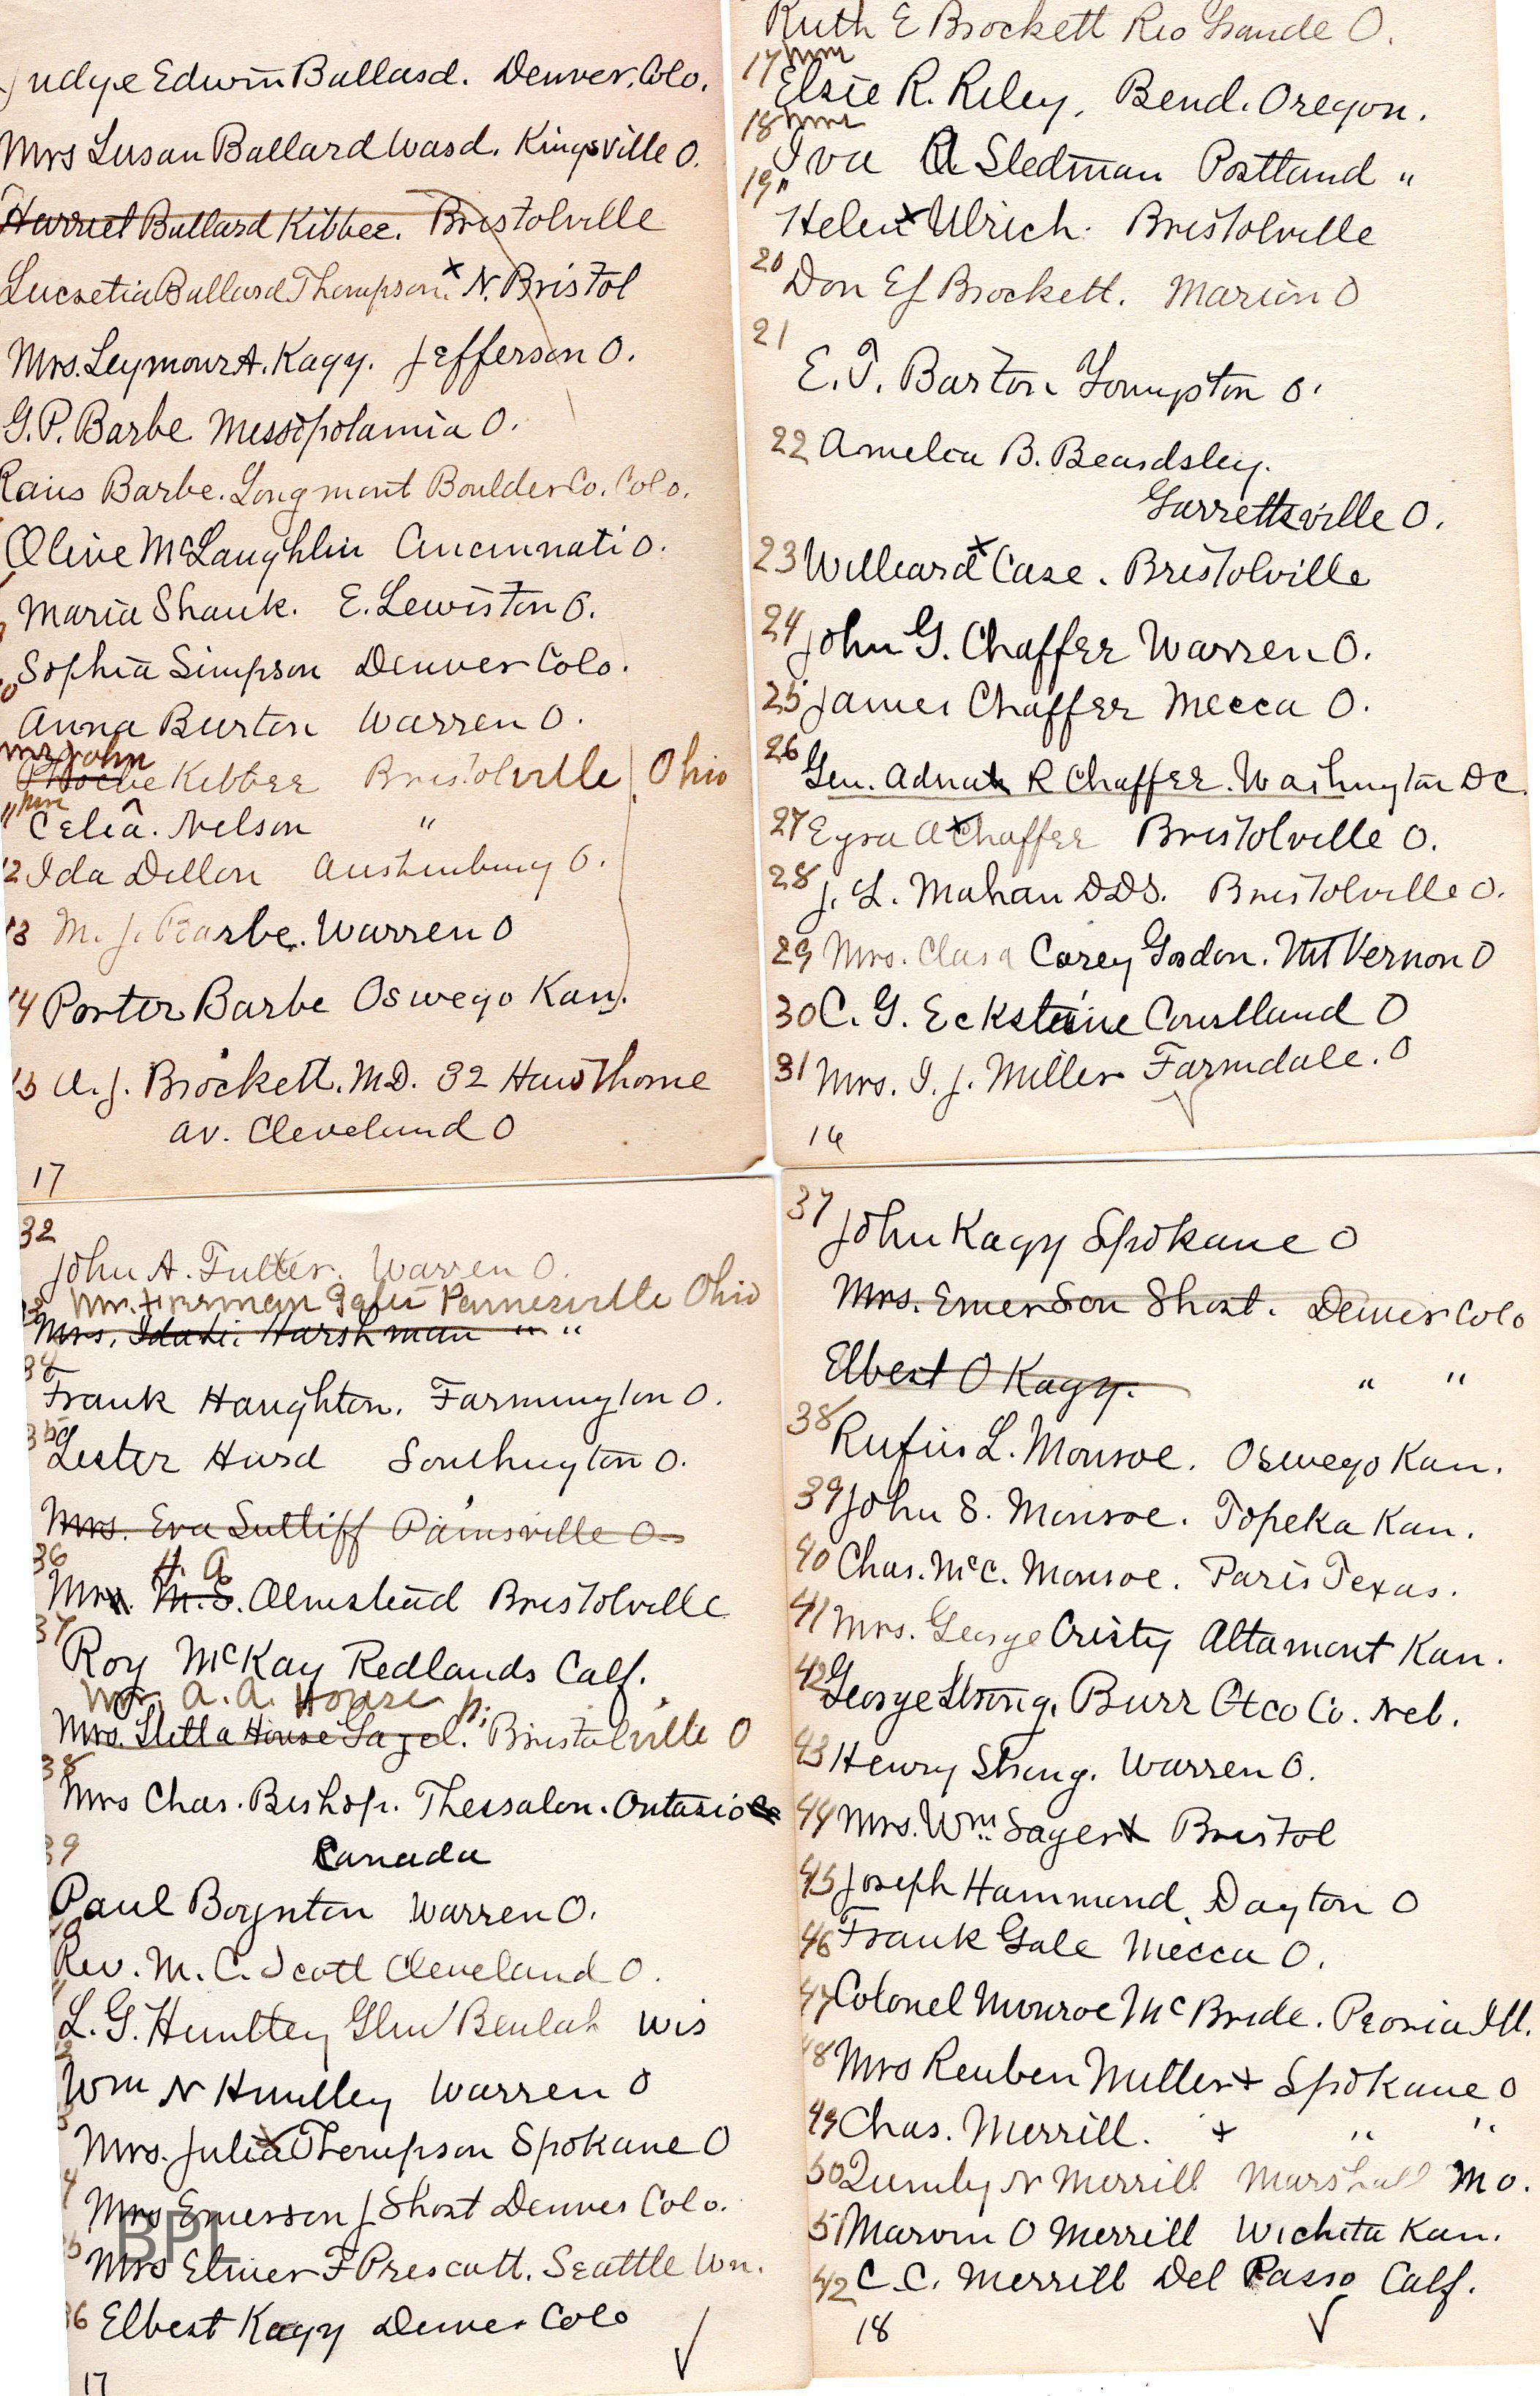 Judge Edwin Ballard. Denver, Colo.
Mrs Susan Ballard Ward. Kingsville O.
Harriet Ballard Kibbee. Bristolville
Lucretia Ballard Thompson. x N. Bristol
Mrs. Seymour A. Kagy. Jefferson O.
G. P. Barbe Messopotamia O.
Barbe. Longmont Boulder Co. Colo.
Olive McLaughlin Cincinnati O.
Maria Shauk. E. Lewiston O.
Sophia Simpson Denver Colo.
Anna Burton Warren O.
Mr John
Phoebe Kibbee Bristolville Ohio
11 Mrs
Celia. Nelson "
12 Ida Dillon Austinburg O.
13 M. J. Barbe. Warren O
14 Porter Barbe Oswego Kan.
15 A. J. Brockett. M.D. 32 Hawthorne
av. Cleveland O
17
Ruth E Brockett Rio Grande O.
17 Mrs
Elsie R. Riley, Bend. Oregon.
18 Mrs
Iva A Stedman Portland "
19 "
Helen x Ulrich. Bristolville
20 Don E Brockett. Marion O
21
E. T. Barton O.
22 Amelia B. Beardsley.
Garrettsville O.
23 Williard x Case. Bristolville
24 John G. Chaffee Warren O.
25 James Chaffee Mecca O.
26 Gen. Adna R Chaffee. Washington DC
27 Ezra A x Chaffee Bristolville O.
28 J. L. Mahan DDS. Bristolville O.
29 Mrs. Clara Carey Gordon. Mt Vernon O
30 C. G. Eckstine Courtland O
31 Mrs. I. J. Miller Farmdale. O
16
32
John A. Fuller. Warren O.
Mr. Herman Painesville Ohio
Mrs. Harshman " "
34
Frank Haughton. Farmington O.
35
Lester Hurd Southington O.
Mrs. Eva Sutliff Painsville O
36 H. A
Mrs. M. S. Olmstead Bristolville
37
Roy McKay Redlands Calf.
Mr. A. A. House
Mrs. Stella House Sagel. Bristolville O
38
Mrs Chas. Bishop. Thessalon. Ontario
39 Canada
Paul Boynton Warren O.
Rev. M. C. Scott Cleveland O.
L. G. Huntley Glen Beulah Wis
Wm N Huntley Warren O
Mrs. Julia x Thompson Spokane O
Mrs Emerson J Short Denver Colo.
Mrs Elmer F Prescott. Seattle Wn.
36 Elbert Kagy Denver Colo
17
BPL
37
John Kagy Spokane O
Mrs. Emerson Short. Denver Colo
Elbert O Kagy. " "
38 Rufus L. Monroe. Oswego Kan.
39 John S. Monroe. Topeka Kan.
40 Chas. McC. Monroe. Paris Texas.
41 Mrs. George Cristy Altamont Kan.
42 George Strong. Burr Otco Co. Neb.
43 Henry Strong. Warren O.
44 Mrs. Wm. Sager x Bristol
45 Joseph Hammond, Dayton O
46 Frank Gale Mecca O.
47 Colonel Monroe McBride. Peoria Ill.
48 Mrs Reuben Miller + Spokane O
49 Chas. Merrill. + " "
50 Quimby N Merrill Marshall Mo.
51 Marvin O Merrill Wichita Kan.
42 C. C. Merrill Del Passo Calf.
18